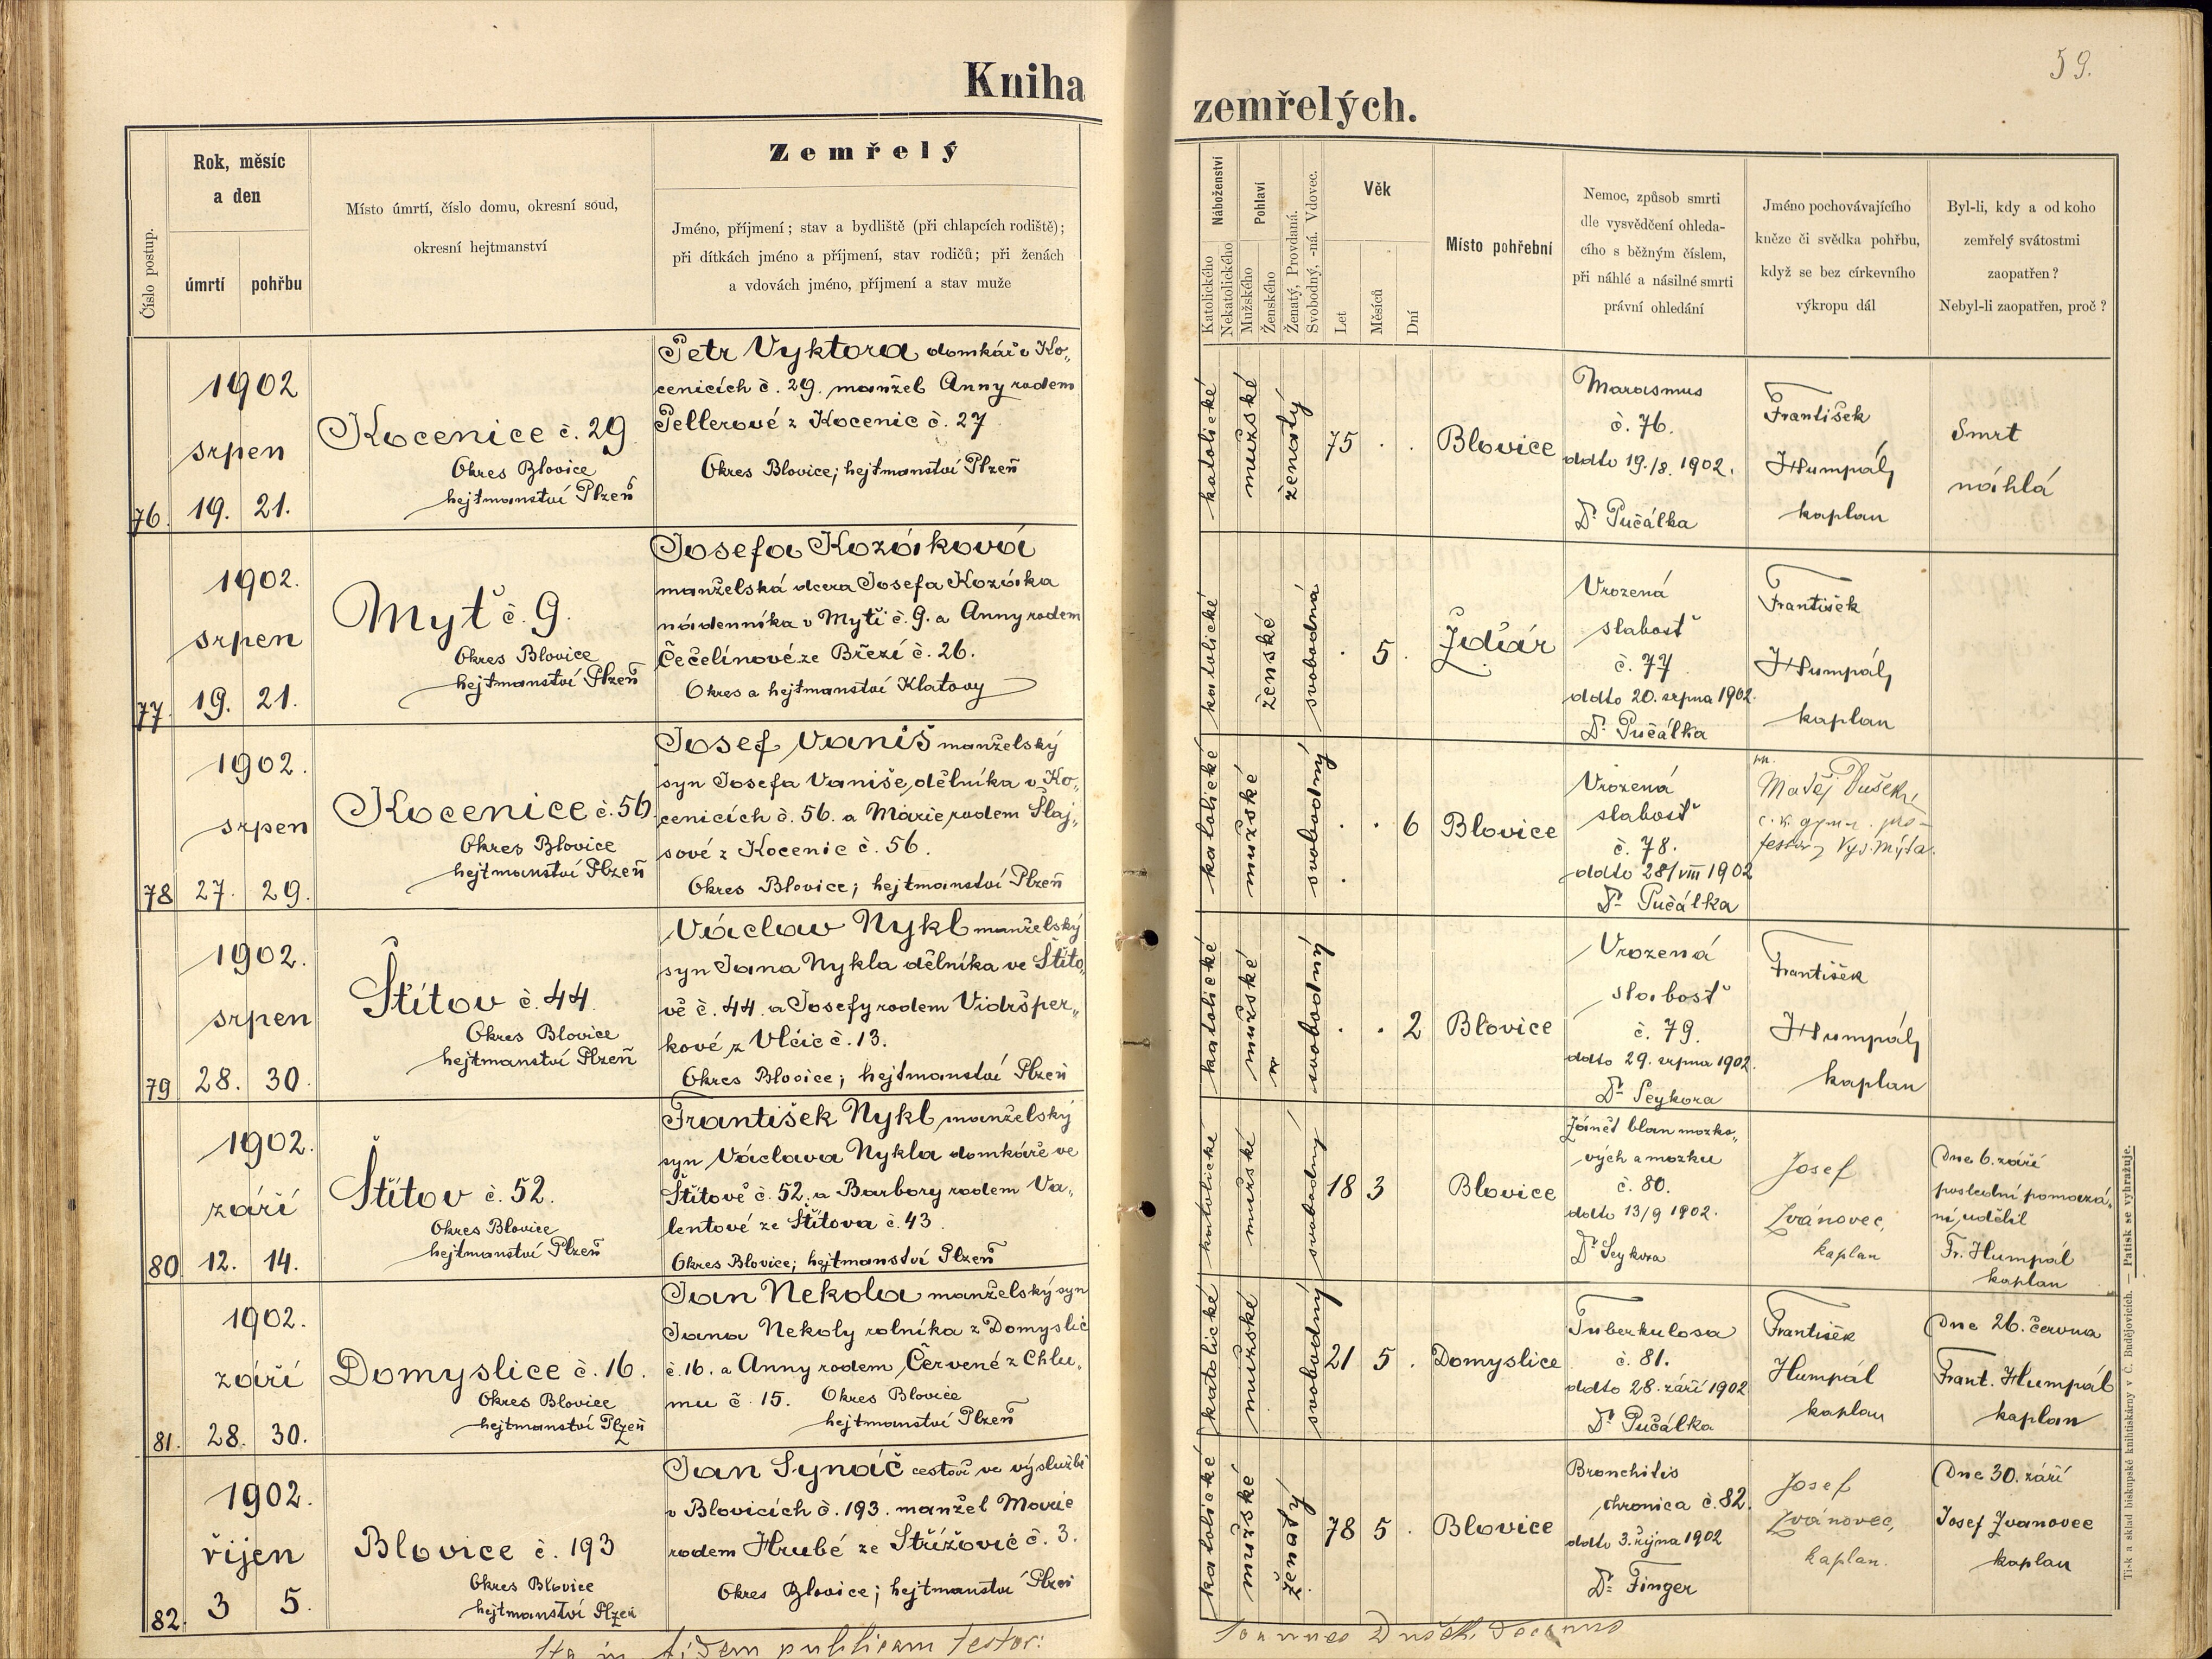 59.
Kniha
zemřelých.
Číslo postup.
Rok, měsíc
a den
úmrtí
pohřbu
Místo úmrtí, číslo domu, okresní soud,
okresní hejtmanství
Zemřelý
Jméno, příjmení; stav a bydliště (při chlapcích rodiště);
při dítkách jméno a příjmení, stav rodičů; při ženách
a vdovách jméno, příjmení a stav muže
Náboženství
Katolického
Nekatolického
Pohlaví
Mužského
Ženského
Ženatý, Provdaná.
Svobodný, -ná. Vdovec.
Věk
Let
Měsíců
Dní
Místo pohřební
Nemoc, způsob smrti
dle vysvědčení ohleda-
cího s běžným číslem,
při náhlé a násilné smrti
právní ohledání
Jméno pochovávajícího
kněze či svědka pohřbu,
když se bez církevního
výkropu dál
Byl-li, kdy a od koho
zemřelý svátostmi
zaopatřen?
Nebyl-li zaopatřen, proč?
76.
1902
srpen
19. 21.
Kocenice č. 29
Okres Blovice
hejtmanství Plzeň
Petr Vyktora domkář v Ko„
cenicích č. 29. manžel Anny rodem
Pellerové z Kocenic č. 27
Okres Blovice; hejtmanství Plzeň
katolické
mužské
ženatý
75 . .
Blovice
Marasmus
č. 76.
ddto 19./8. 1902.
Dr. Pučálka
František
Humpál
kaplan
Smrt
náhlá
77.
1902.
srpen
19. 21.
Myť č. 9.
Okres Blovice
hejtmanství Plzeň
Josefa Kozáková
manželská dcera Josefa Kozáka
nádenníka v Myti č. 9. a Anny rodem
Čečelínové ze Březí č. 26.
Okres a hejtmanství Klatovy
katolické
ženské
svobodná
. 5 .
Ždiár
Vrozená
slabosť
č. 77
ddto 20. srpna 1902.
Dr. Pučálka
František
Humpál
kaplan
78
1902.
srpen
27. 29.
Kocenice č. 56.
Okres Blovice
hejtmanství Plzeň
Josef Vaniš manželský
syn Josefa Vaniše, dělníka v Ko„
cenicích č. 56. a Marie, rodem Šlaj„
sové z Kocenic č. 56.
Okres Blovice; hejtmanství Plzeň
katolické
mužské
svobodný
. . 6
Blovice
Vrozená
slabosť
č. 78.
ddto 28/VIII 1902
Dr. Pučálka
Matěj Dušek,
c. k. gymn. pro-
fesor z Vys. Mýta.
79
1902.
srpen
28. 30.
Štítov č. 44.
Okres Blovice
hejtmanství Plzeň
Václav Nykl manželský
syn Jana Nykla dělníka ve Štíto„
vě č. 44. a Josefy rodem Vidršper„
kové z Vlčic č. 13.
Okres Blovice; hejtmanství Plzeň
katolické
mužské
svobodný
. . 2
Blovice
Vrozená
slabosť
č. 79.
ddto 29. srpna 1902.
Dr. Seykora
František
Humpál
kaplan
80
1902.
září
12. 14.
Štítov č. 52.
Okres Blovice
hejtmanství Plzeň
František Nykl, manželský
syn Václava Nykla domkáře ve
Štítově č. 52. a Barbory rodem Va„
lentové ze Štítova č. 43.
Okres Blovice; hejtmanství Plzeň
katolické
mužské
svobodný
18 3
Blovice
Zánět blan mozko„
vých a mozku
č. 80.
ddto 13/9 1902.
Dr. Seykora
Josef
Zvánovec,
kaplan
Dne 6. září
poslední pomazá„
ní, udělil
Fr. Humpál
kaplan
81.
1902.
září
28. 30.
Domyslice č. 16.
Okres Blovice
hejtmanství Plzeň
Jan Nekola manželský syn
Jana Nekoly rolníka z Domyslic
č. 16. a Anny rodem Červené z Chlu„
mu č. 15. Okres Blovice
hejtmanství Plzeň
katolické
mužské
svobodný
21 5 .
Domyslice
Tuberkulosa
č. 81.
ddto 28. září 1902
Dr. Pučálka
František
Humpál
kaplan
Dne 26. června
Frant. Humpál
kaplan
82.
1902.
říjen
3 5.
Blovice č. 193
Okres Blovice
hejtmanství Plzeň
Jan Synáč cestář ve výslužbě
v Blovicích č. 193. manžel Marie
rodem Hrubé ze Střížovic č. 3.
Okres Blovice; hejtmanství Plzeň
katolické
mužské
ženatý
78 5 .
Blovice
Bronchitis
chronica č. 82.
ddto 3. října 1902
Dr. Finger
Josef
Zvánovec,
kaplan.
Dne 30. září
Josef Zvanovec
kaplan
Ita in fidem publicam testor:
Joannes Dušek
Tisk a sklad biskupské knihtiskárny v Č. Budějovicích. — Patisk se vyhražuje.